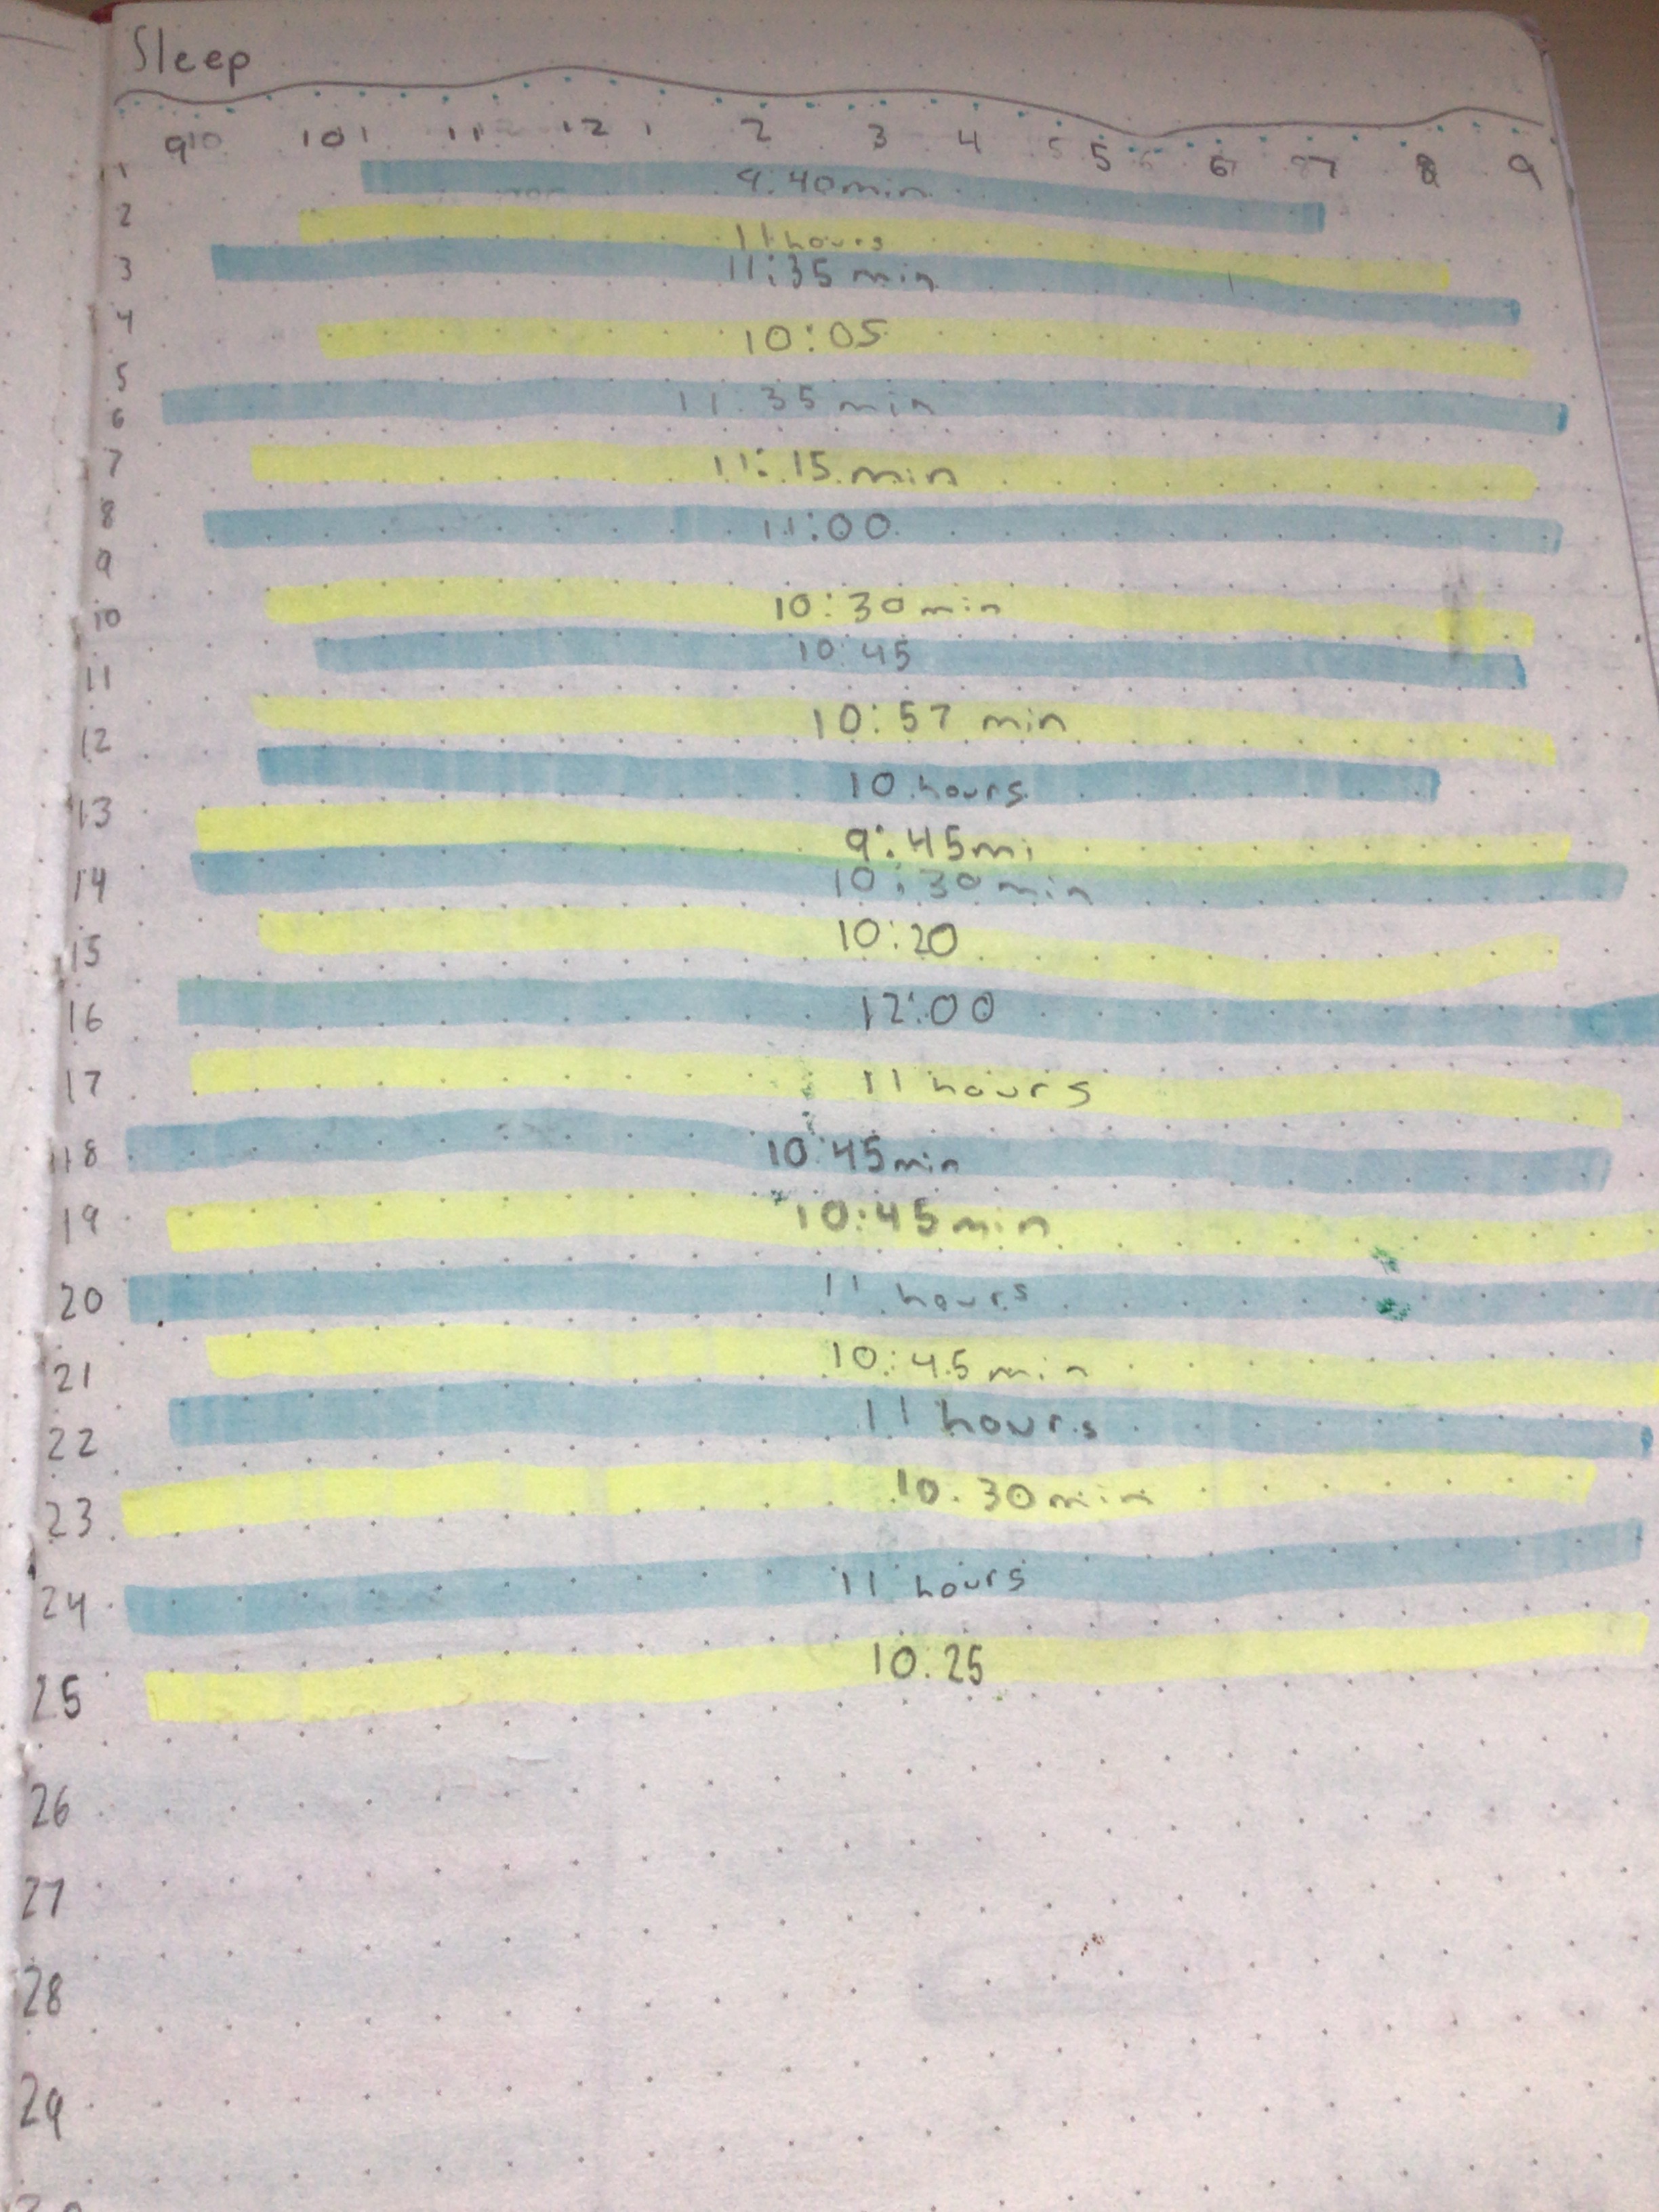 Sleep
9 10 10 1 11 12 1 2 3 4 5 5 6 7 8 9
1 9:40min
2
11 hours
3 11:35 min
4 10:05
5
6 11:35 min
7 11:15 min
8 11:00
9
10 10:30 min
11 10:45
12 10:57 min
10 hours
13 9:45mi
14 10:30 min
15 10:20
16 12:00
17 11 hours
18 10:45min
19 10:45min
20 11 hours
21 10:45 min
22 11 hours
23 10.30 min
24 11 hours
25 10.25
26
27
28
29